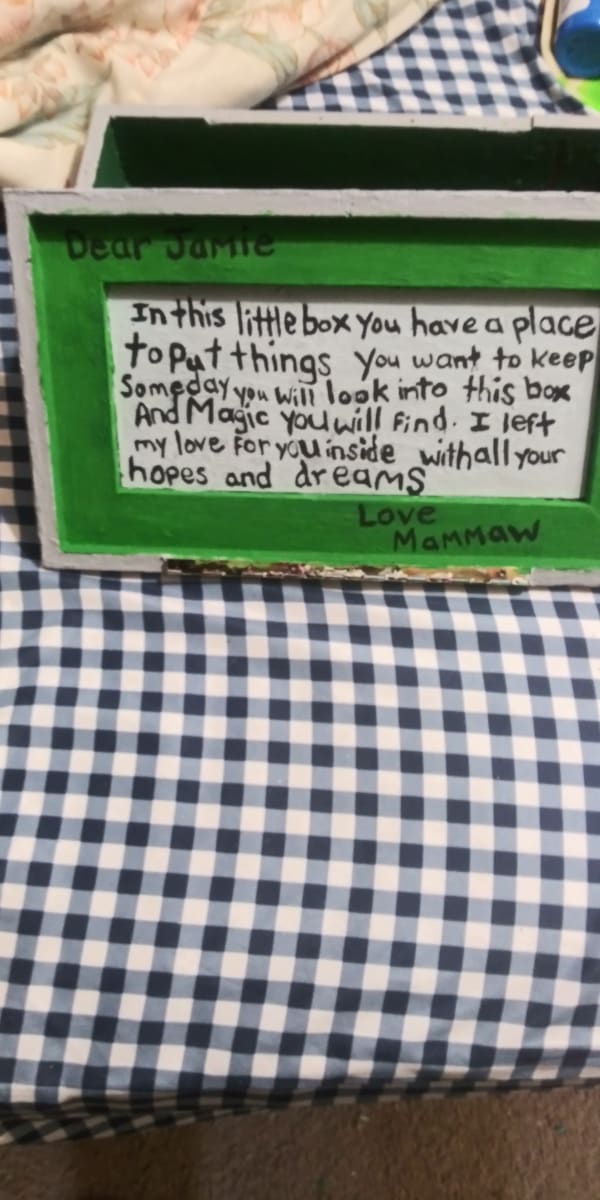 Dear Jamie
In this little box you have a place
to put things you want to keep
Someday you will look into this box
And Magic you will find. I left
my love for you inside with all your
hopes and dreams
Love
Mammaw